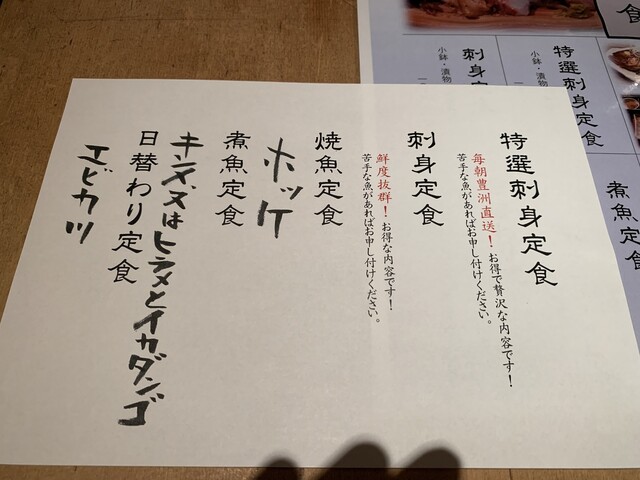 特選刺身定食
毎朝豊洲直送！お得で贅沢な内容です！
苦手な魚があればお申し付けください。
刺身定食
鮮度抜群！お得な内容です！
苦手な魚があればお申し付けください。
焼魚定食
ホッケ
煮魚定食
キンメ又はヒラメとイカダンゴ
日替わり定食
エビカツ
特選刺身定食
小鉢・漬物
刺身定食
小鉢・漬物
煮魚定食
定食